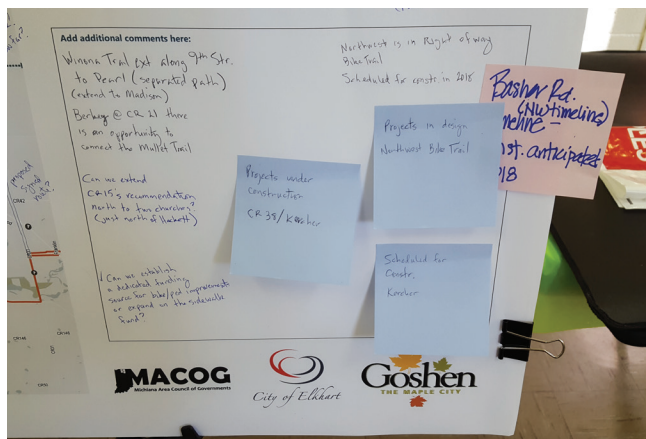 Add additional comments here:
Winona Trail ext along 9th Str.
to Pearl (separated path)
(extend to Madison)
@ CR 21 there
is an opportunity to
connect the Mullet Trail
Can we extend
CR15's recommendation
north to two churches?
(just north of Hackett)
Can we establish
a dedicated funding
source for bike/ped improvements
or expand on the sidewalk
fund?
Northwest is in Right of way
Bike Trail
Scheduled for constr. in 2018
Projects in design
Northwest Bike Trail
Projects under
construction
CR 38/Kercher
Scheduled for
Constr.
Kercher
Bashor Rd.
(NW) timeline
meline -
st. anticipated
18
proposed
CR42
MACOG
Michiana Area Council of Governments
City of Elkhart
Goshen
THE MAPLE CITY